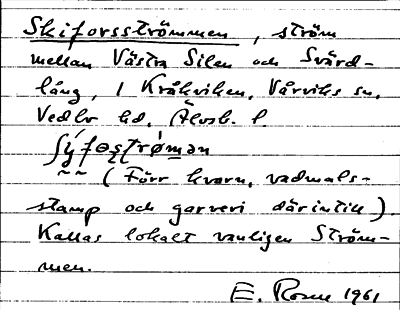 Skiforsströmmen, ström
mellan Västra Silen och Svärd-
lång, i Kråkviken, Vårviks sn,
Vedbo hd, Älvsb. l.
(Förr kvarn, vadmals-
stamp och garveri därintill).
Kallas lokalt vanligen Ström-
men.
E. Rosen 1961